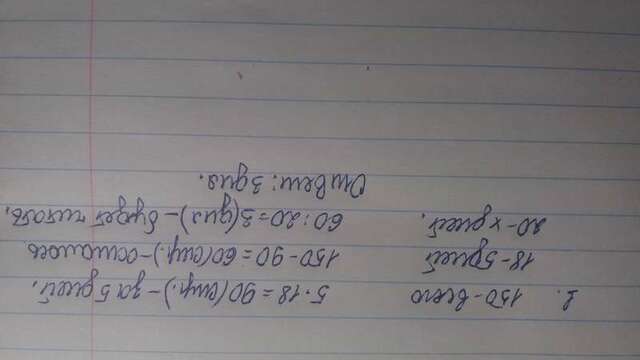 1. 150-всего 5·18=90(стр.)-за 5 дней.
18-5дней 150-90=60(стр.)-осталось
20-х дней. 60:20=3(дня)-будет читать.
Ответ: 3дня.